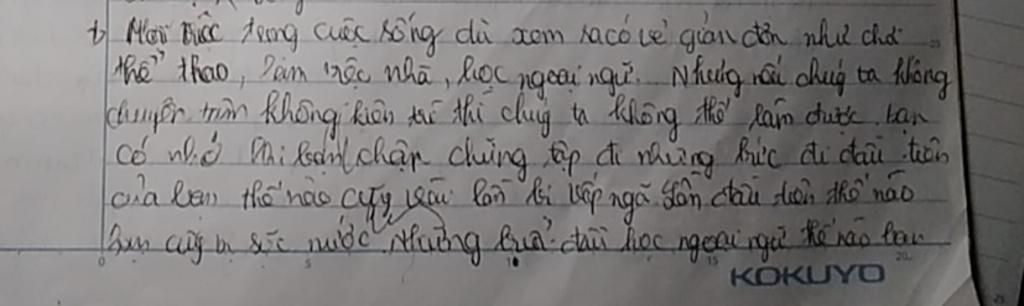 b, Mọi việc trong cuộc sống dù xem ra có vẻ giản đơn như chơi
thể thao, làm việc nhà, học ngoại ngữ. Nhưng nếu chúg ta không
chuyên tâm không kiên trì thì chúg ta không thể làm được. bạn
có nhớ khi bạn chập chững tập đi những bước đi đầu tiên
của bạn thế nào cũg vài lần bị vấp ngã lần đầu tiên thế nào
bạn cũg bị sặc nước Những buổi đầu học ngoại ngữ thế nào bạn
KOKUYO